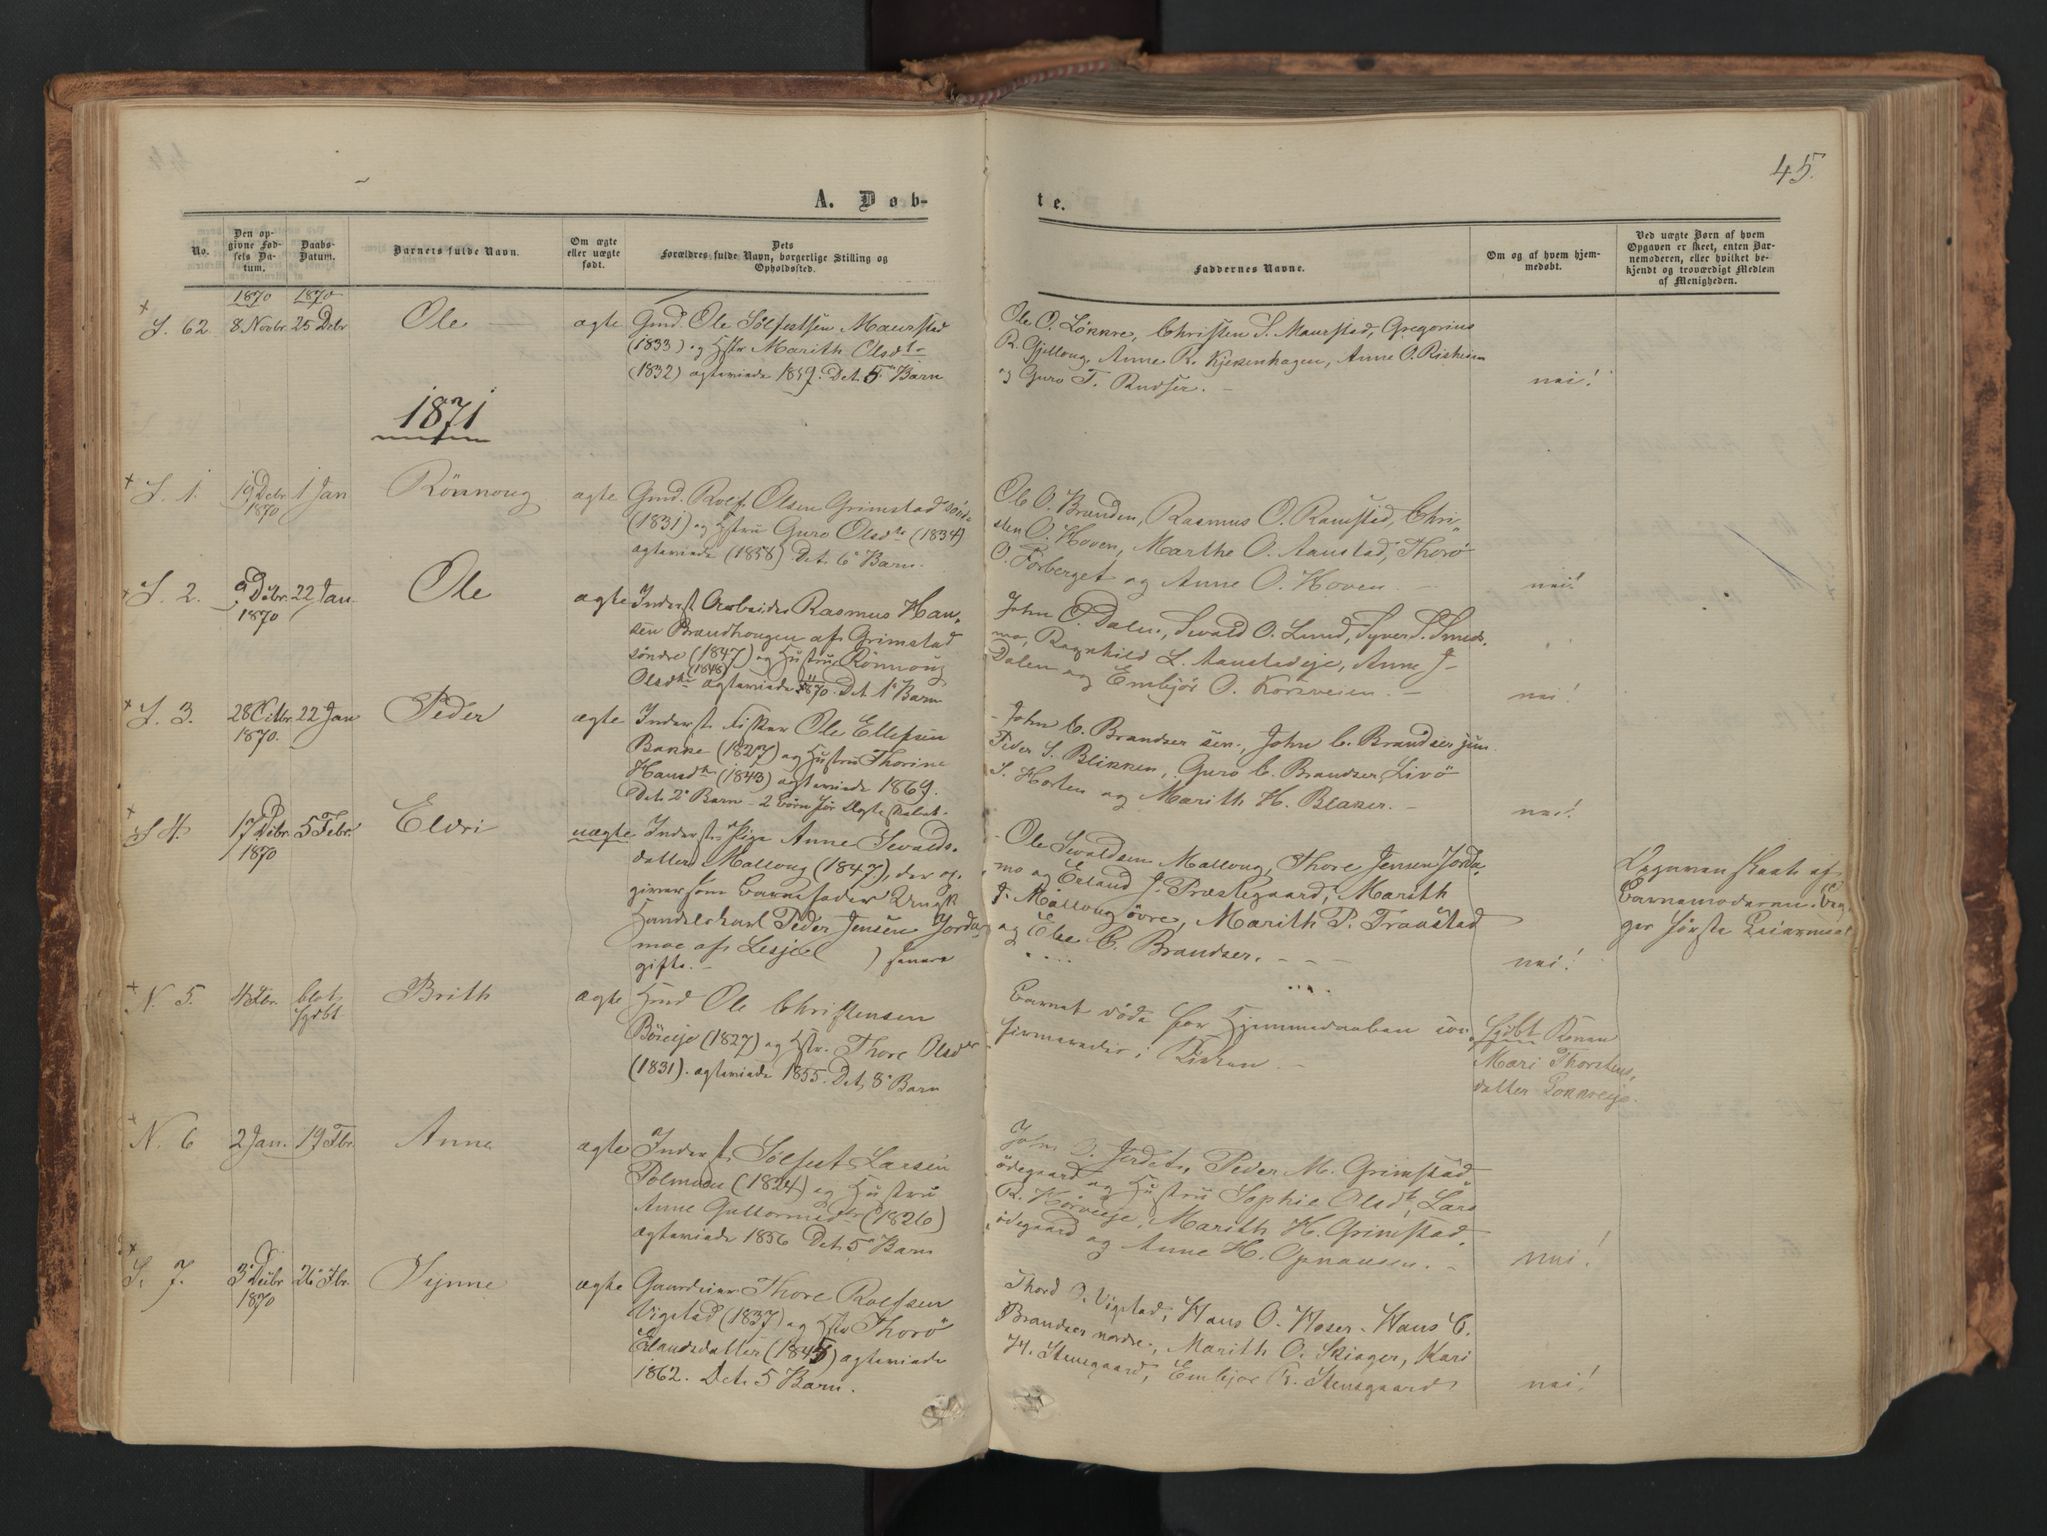 45.
A. Døb-
te.
No.
Den op-
givne Fød-
sels Da-
tum.
Daabs-
Datum.
Barnets fulde Navn.
Om ægte
eller uægte
født.
Dets
Forældres fulde Navn, borgerlige Stilling og
Opholdssted.
Faddernes Navne.
Om og af hvem hjem-
medøbt.
Ved uægte Børn af hvem
Opgaven er skeet, enten Bar-
nemoderen, eller hvilket be-
kjendt og troværdigt Medlem
af Menigheden.
1870 1870
S. 62. 8 Novbr. 25 Debr
Ole
ægte
Gmd. Ole Sølfestsen Maurstad
(1833) og Hstr Marith Olsdtr
(1832) ægteviede 1859. Det 5te Barn
Ole O. Løkkre, Christen S. Maurstad, Gregorius
R. Gjellong, Anne R. Kjekenhagen, Anne O. Risheim
og Guro T. Rudser. -
nei!
1871
S. 1. 19 Debr 1 Jan
1870
Rönnoug
ægte
Gmd. Rolf Olsen Grimstad
(1831) og Hstru Guro Olsdtr (1834)
ægteviede (1858) Det 6te Barn.
Ole O. Branden, Rasmus O. Ramstad, Chri-
sten O. Hoven, Marthe O. Aaustad, Thorö
O. Forberget og Anne O. Hoven. -
nei!
S. 2. 9 Debr. 22 Jan
1870
Ole
ægte
Inderst Arbeider Rasmus Han-
sen Brændhougen af Grimstad
søndre (1847) og Hustru Rönnoug
Olsdtr (1848) ægteviede 1870. Det 1te Barn
John O. Dalen, Sevald O. Lund, Syver S.
mo, Ragnhild L. Aaustadeje, Anne J-
Dalen og Embjör O. Korsveien. -
nei!
S. 3. 28 22 Jan
1870.
Peder
ægte
Inderst Fisker Ole Ellefsen
Bakke (1827) og Hustru Thorine
Hansdtr (1843) ægteviede 1869.
Det 2det Barn - 2 Börn før Ægteskabet.
- John C. Brandser sen., John C. Brandser jun
Peder S. Blikken, Guro C. Brandser, Livö
S. Horten og Marith H. Blaker. -
nei!
S 4. 17 Debr. 5 Febr.
1870
Eldri
uægte
Inderst Pige Anne Sevalds-
datter Mallong (1847), der op-
giver som Barnefader Ungk
Handelskarl Peder Jensen Jorda-
moe af Lesje
gift. -
- Ole Sevaldsen Mallong, Thore Jensen Jorda-
mo og Erland J. Præstegaard, Marith
J. Mallong øvre, Marith P. Traastad
og Else C. Brandser. - - -
nei!
Opgaven skeet af
Barnemoderen. Beg-
ges første Leiermaal
N. 5. 4 Fbr. blot
hjdbt
Brith
ægte
Hmd Ole Christensen
Böreeje (1827) og Hstr. Thore Olsdtr
(1831). ægteviede 1855. Det 8de Barn
Barnet døde før Hjemmedaaben con-
firmeredes i Kirken. -
hjdbt Konen
Mari Thorstens-
datter
N. 6 2 Jan. 19 Fbr.
Anna
ægte
Inderst Sølfest Larsen
Polmoen (1824) og Hustru
Anne Guttormsdtr (1826)
ægteviede 1856 Det 5te Barn
John O. Jordet, Peder M. Grimstad-
ødegaard og Hustru Sophie Olsdtr, Lars
R. Mariith H. Grimstad-
ødegaard og Anne H. Opnausen. -
nei!
S. 7. 3 Debr 26 Fbr.
1870
Synne
ægte
Gaardeier Thore Rolfsen
Vigstad (1837) og Hstr Thorö
Erlandsdatter (1845) ægteviede
1862. Det 5 Barn.
Thord O. Vigstad, Hans O. Moser, Hans C.
Brandser nordre, Marith O. Skiager, Kari
H. Stenegaard, Embjør R. Stensgaard
nei!